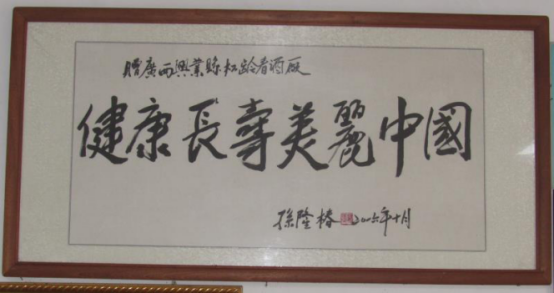 赠廣西興業縣松齡春酒厰
健康長壽美麗中國
孫隆椿 二〇一六年十月